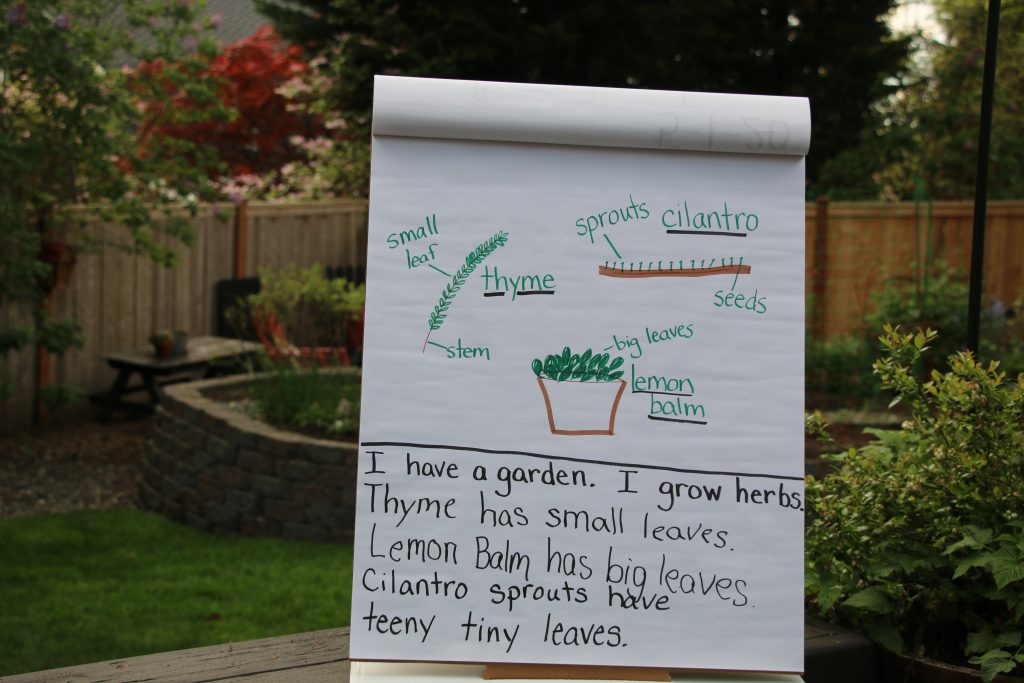 small
leaf
thyme
stem
sprouts cilantro
seeds
big leaves
lemon
balm
I have a garden. I grow herbs.
Thyme has small leaves.
Lemon Balm has big leaves.
Cilantro sprouts have
teeny tiny leaves.